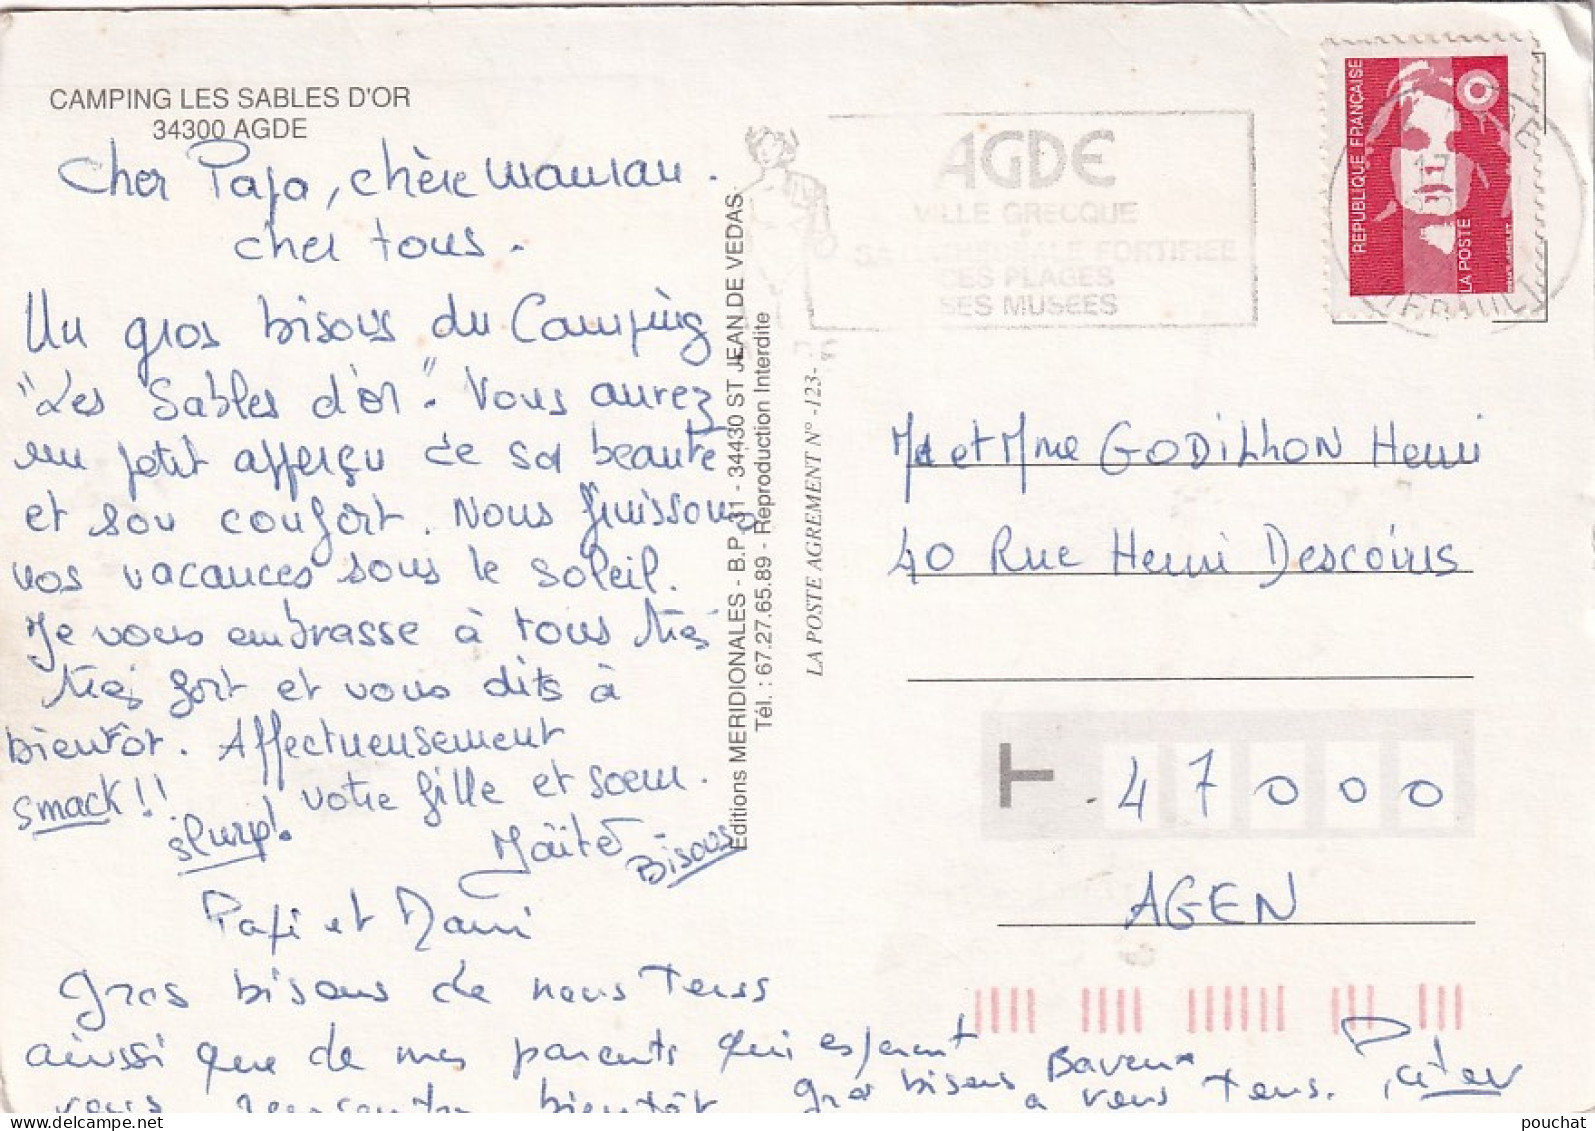 CAMPING LES SABLES D'OR
34300 AGDE
Cher Papa, chère Maman.
cher tous.
Un gros bisous du Camping
"Les Sables d'or". Vous aurez
un petit apperçu de sa beauté
et son confort. Nous finissons
nos vacances sous le soleil.
Je vous embrasse à tous très
très fort et vous dits à
bientôt. Affectueusement
smack!! votre fille et soeur.
slurp! Maïté Bisous
Papi et Mami
Gros bisous de nous tous
ainsi que de mes parents qui espèrent
vous rencontrer bientôt
gros bisous Baveux
à vous tous.
Editions MERIDIONALES - B.P. 31 - 34430 ST JEAN DE VEDAS
Tél. : 67.27.65.89 - Reproduction Interdite
LA POSTE AGREMENT N° -123-
AGDE
VILLE GRECQUE
SA CATHEDRALE FORTIFIEE
SES PLAGES
SES MUSEES
REPUBLIQUE FRANÇAISE
LA POSTE
17
HERAULT
M et Mme GODILLON Henri
40 Rue Henri Descoins
T 47000
AGEN
pouchat